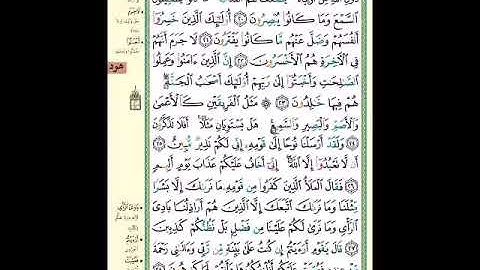 السَّمْعَ وَمَا كَانُوا۟ يُبْصِرُونَ ۝٢٠ أُو۟لَٰٓئِكَ ٱلَّذِينَ خَسِرُوٓا۟
أَنفُسَهُمْ وَضَلَّ عَنْهُم مَّا كَانُوا۟ يَفْتَرُونَ ۝٢١ لَا جَرَمَ أَنَّهُمْ
فِى ٱلْءَاخِرَةِ هُمُ ٱلْأَخْسَرُونَ ۝٢٢ إِنَّ ٱلَّذِينَ ءَامَنُوا۟ وَعَمِلُوا۟
ٱلصَّٰلِحَٰتِ وَأَخْبَتُوٓا۟ إِلَىٰ رَبِّهِمْ أُو۟لَٰٓئِكَ أَصْحَٰبُ ٱلْجَنَّةِ
هُمْ فِيهَا خَٰلِدُونَ ۝٢٣ مَثَلُ ٱلْفَرِيقَيْنِ كَٱلْأَعْمَىٰ
وَٱلْأَصَمِّ وَٱلْبَصِيرِ وَٱلسَّمِيعِ هَلْ يَسْتَوِيَانِ مَثَلًا أَفَلَا تَذَكَّرُونَ
۝٢٤ وَلَقَدْ أَرْسَلْنَا نُوحًا إِلَىٰ قَوْمِهِۦٓ إِنِّى لَكُمْ نَذِيرٌ مُّبِينٌ ۝٢٥
أَن لَّا تَعْبُدُوٓا۟ إِلَّا ٱللَّهَ إِنِّىٓ أَخَافُ عَلَيْكُمْ عَذَابَ يَوْمٍ أَلِيمٍ
۝٢٦ فَقَالَ ٱلْمَلَأُ ٱلَّذِينَ كَفَرُوا۟ مِن قَوْمِهِۦ مَا نَرَىٰكَ إِلَّا بَشَرًا
مِّثْلَنَا وَمَا نَرَىٰكَ ٱتَّبَعَكَ إِلَّا ٱلَّذِينَ هُمْ أَرَاذِلُنَا بَادِىَ
ٱلرَّأْىِ وَمَا نَرَىٰ لَكُمْ عَلَيْنَا مِن فَضْلٍۭ بَلْ نَظُنُّكُمْ كَٰذِبِينَ
۝٢٧ قَالَ يَٰقَوْمِ أَرَءَيْتُمْ إِن كُنتُ عَلَىٰ بَيِّنَةٍ مِّن رَّبِّى وَءَاتَىٰنِى رَحْمَةً
هود